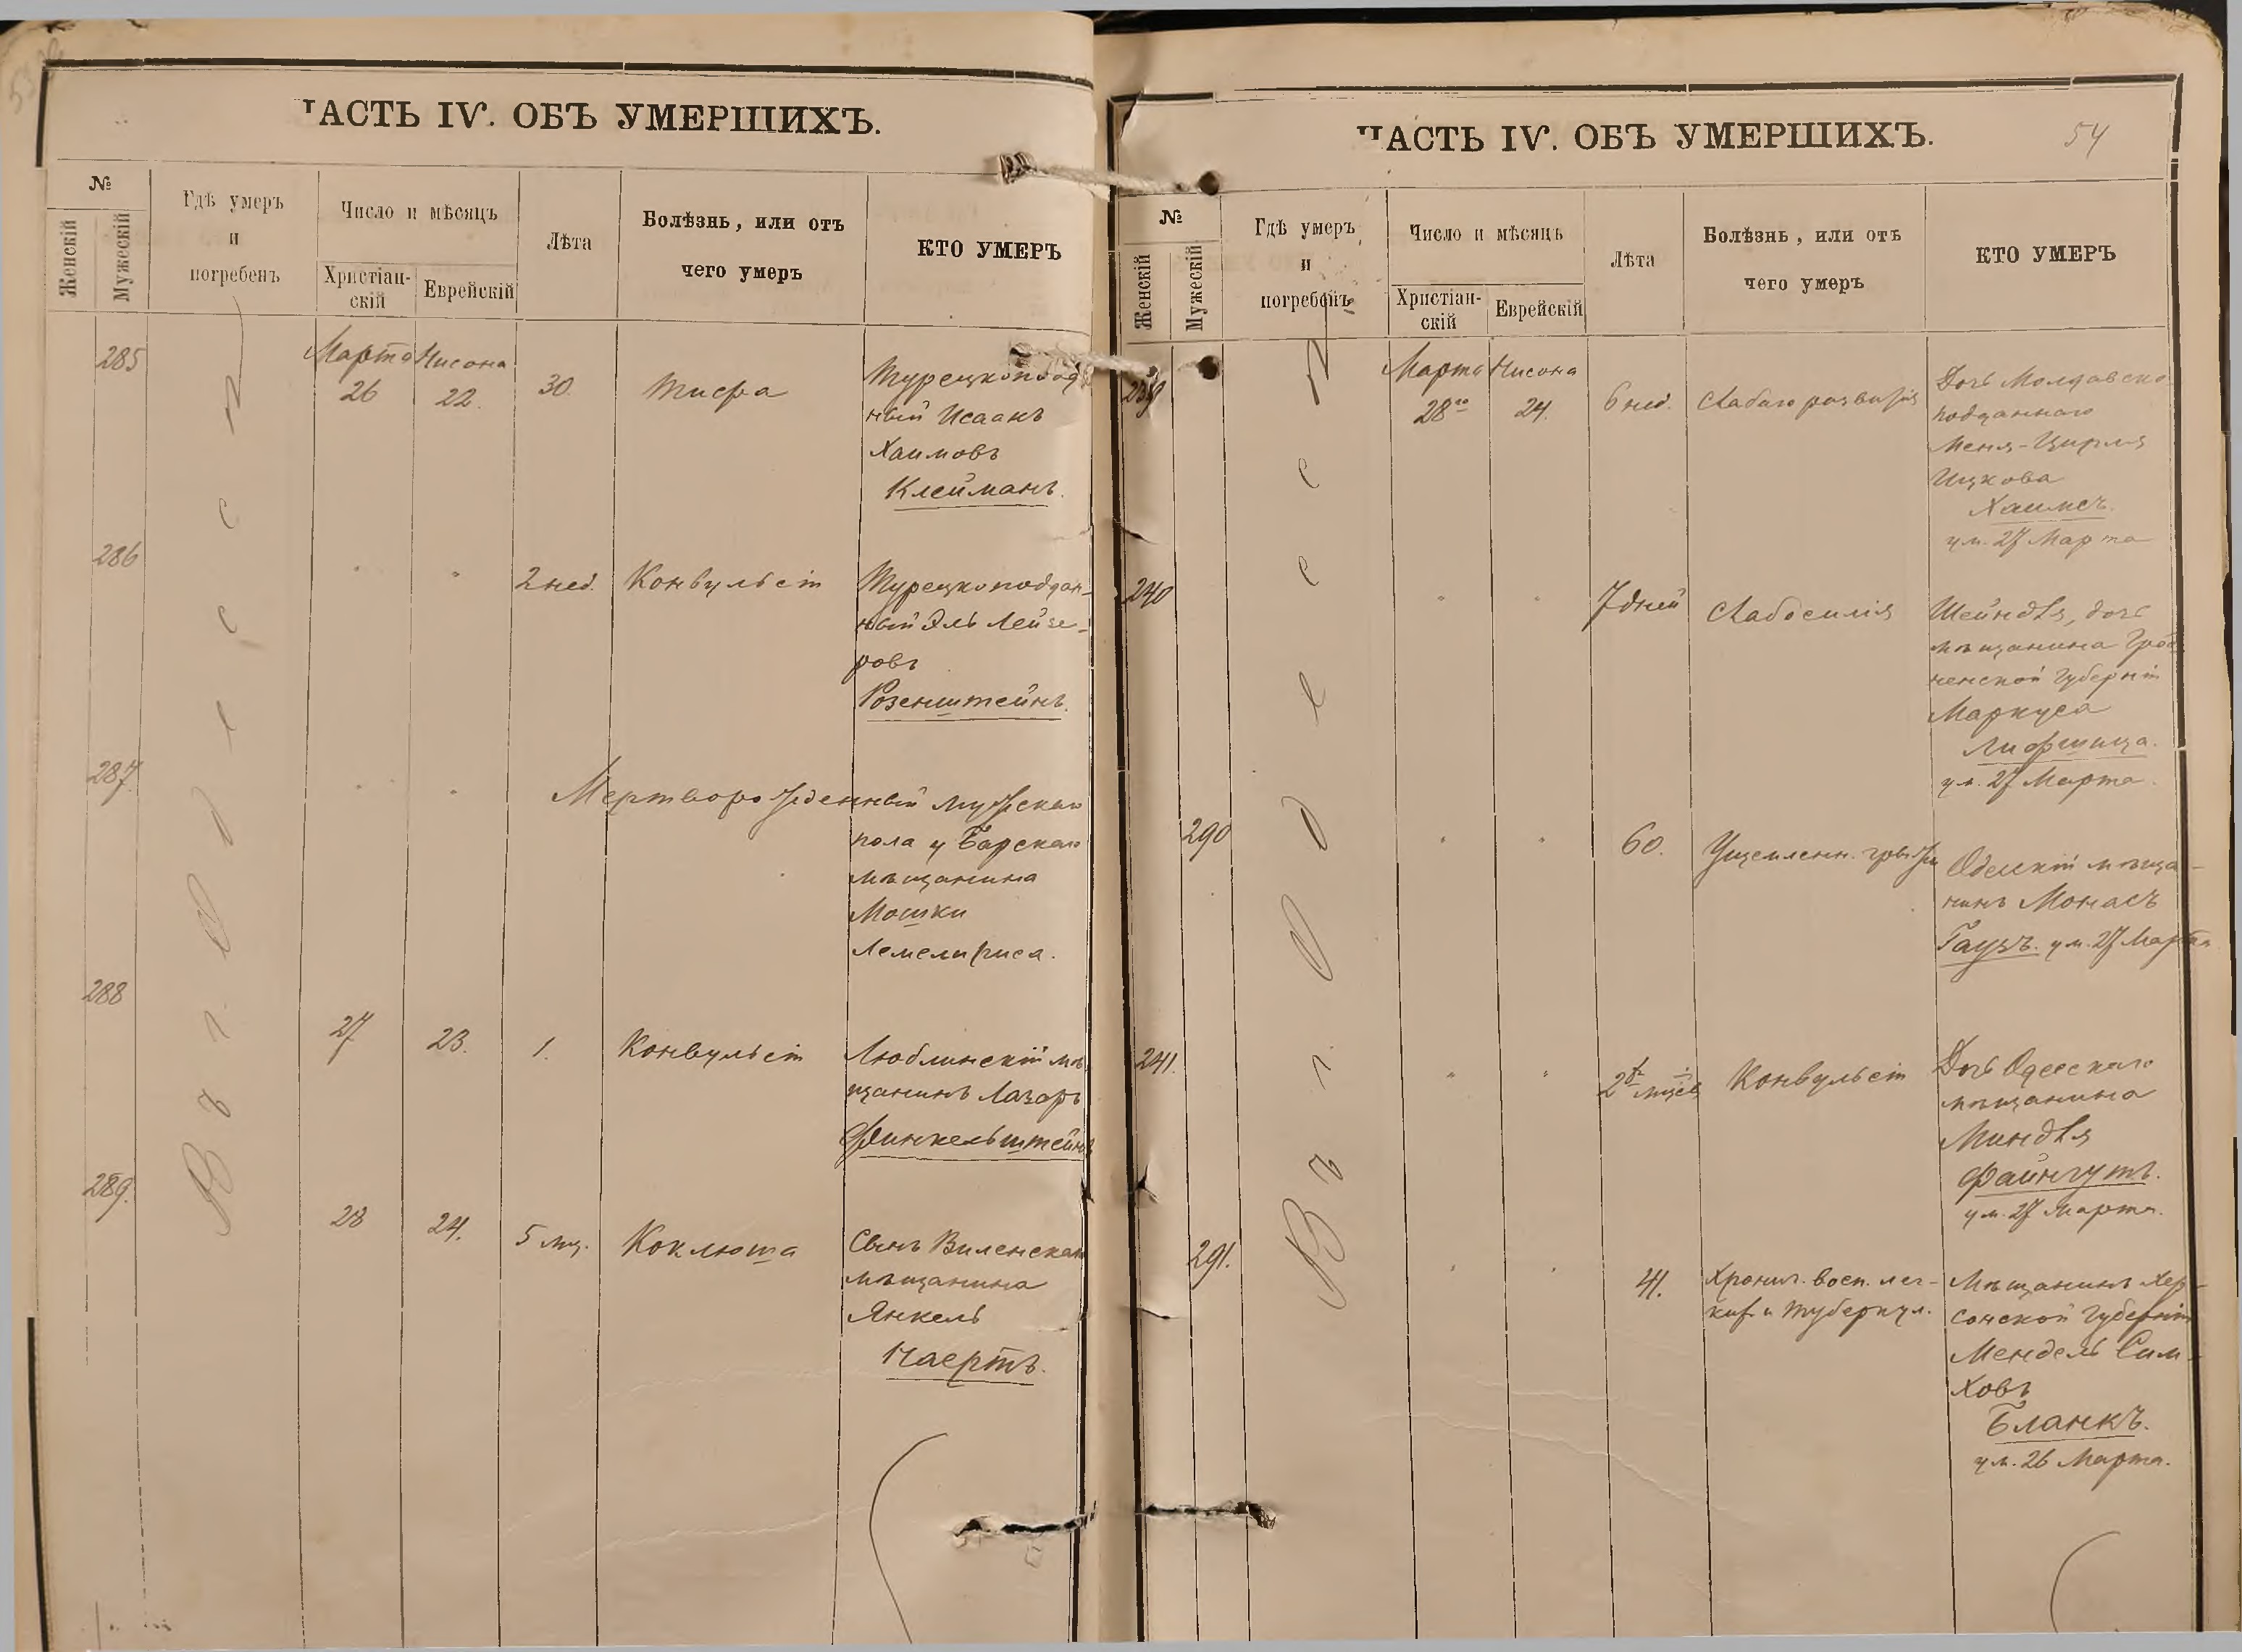 ЧАСТЬ IV. ОБЪ УМЕРШИХЪ.
№
Женскій
Мужескій
Гдѣ умеръ
и
погребенъ
Число и мѣсяцъ
Христіан-
скій
Еврейскій
Лѣта
Болѣзнь, или отъ
чего умеръ
КТО УМЕРЪ
Въ Одессѣ
285
Марта
26
Нисона
22.
30.
Тифа
Турецкоподдан
ный Исаакъ
Хаимовъ
Клейманъ.
286
"
"
2 нед.
Конвульсіи
Турецкоподдан-
ный Эль Лейзе-
ровъ
Розенштейнъ.
287
"
"
Мертворожденный мужскаго
пола у Барскаго
мѣщанина
Мошки
288
27
23.
1.
Конвульсіи
Люблинскій мѣ
щанинъ Лазарь
Финкельштейнъ
289.
28
24.
5 мц.
Коклюша
Сынъ Виленскаго
мѣщанина
Янкель
ЧАСТЬ IV. ОБЪ УМЕРШИХЪ.
54
№
Женскій
Мужескій
Гдѣ умеръ
и
погребенъ
Число и мѣсяцъ
Христіан-
скій
Еврейскій
Лѣта
Болѣзнь, или отъ
чего умеръ
КТО УМЕРЪ
Въ Одессѣ
239
Марта
28го
Нисона
24.
6 нед.
Слабаго развитія
Дочь Молдавско
подданнаго
Меня-Цирля
Ицкова
Хаимсъ.
ум. 27 Марта
240
"
"
7 дней
Слабосилія
Шейндля, дочь
мѣщанина Грод
ненской Губерніи
Маркуса
Лифшица.
ум. 27 Марта.
290
"
"
60.
Ущемленн. грыжи
Одесскій мѣща-
нинъ Монасъ
Гаузъ. ум. 27 Марта
241.
"
"
2 ½ мцев
Конвульсіи
Дочь Одесскаго
мѣщанина
Миндля
Файнгутъ.
ум. 27 Марта.
291.
"
"
41.
Хронич. восп. лег-
ких и туберкул.
Мѣщанинъ Хер-
сонской Губерніи
Мендель Сим-
ховъ
Бланкъ.
ум. 26 Марта.